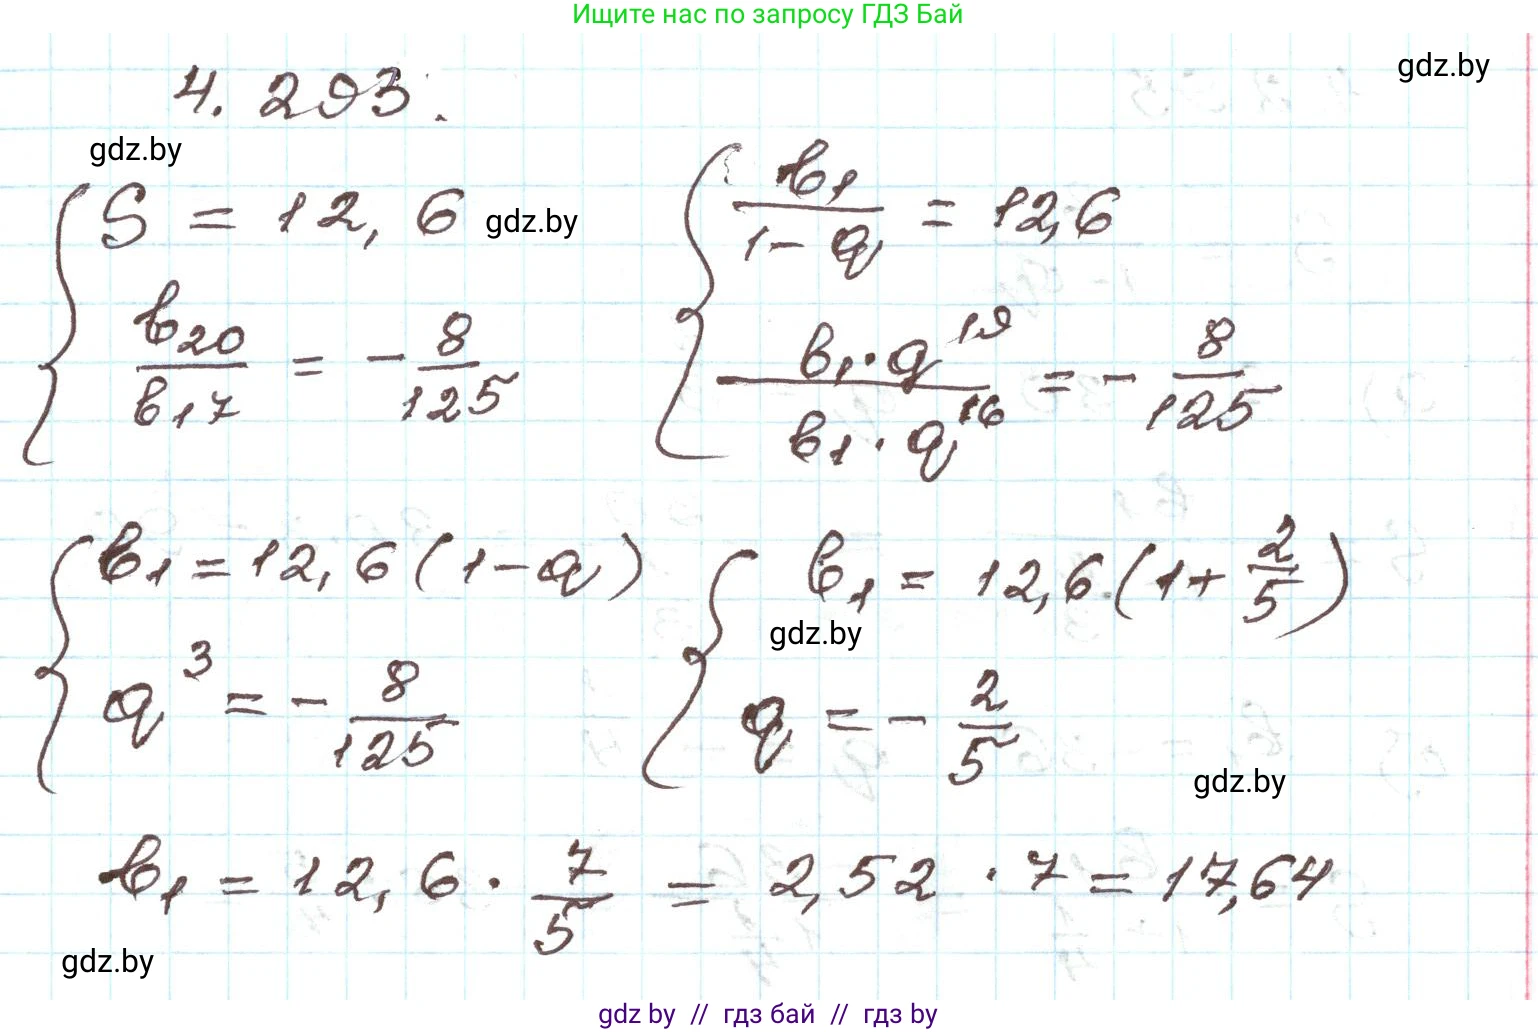 Ищите нас по запросу ГДЗ Бай
gdz.by
4. 293.
gdz.by
{ S = 12,6
b₂₀/b₁₇ = - 8/125
gdz.by
{ b₁/(1-q) = 12,6
b₁·q¹⁹/b₁·q¹⁶ = - 8/125
{ b₁ = 12,6(1-q)
q³ = - 8/125
{ b₁ = 12,6.(1+2/5)
q = - 2/5
gdz.by
gdz.by
b₁ = 12,6 · 7/5 = 2,52 · 7 = 17,64
gdz.by
gdz by // гдз бай // гдз by